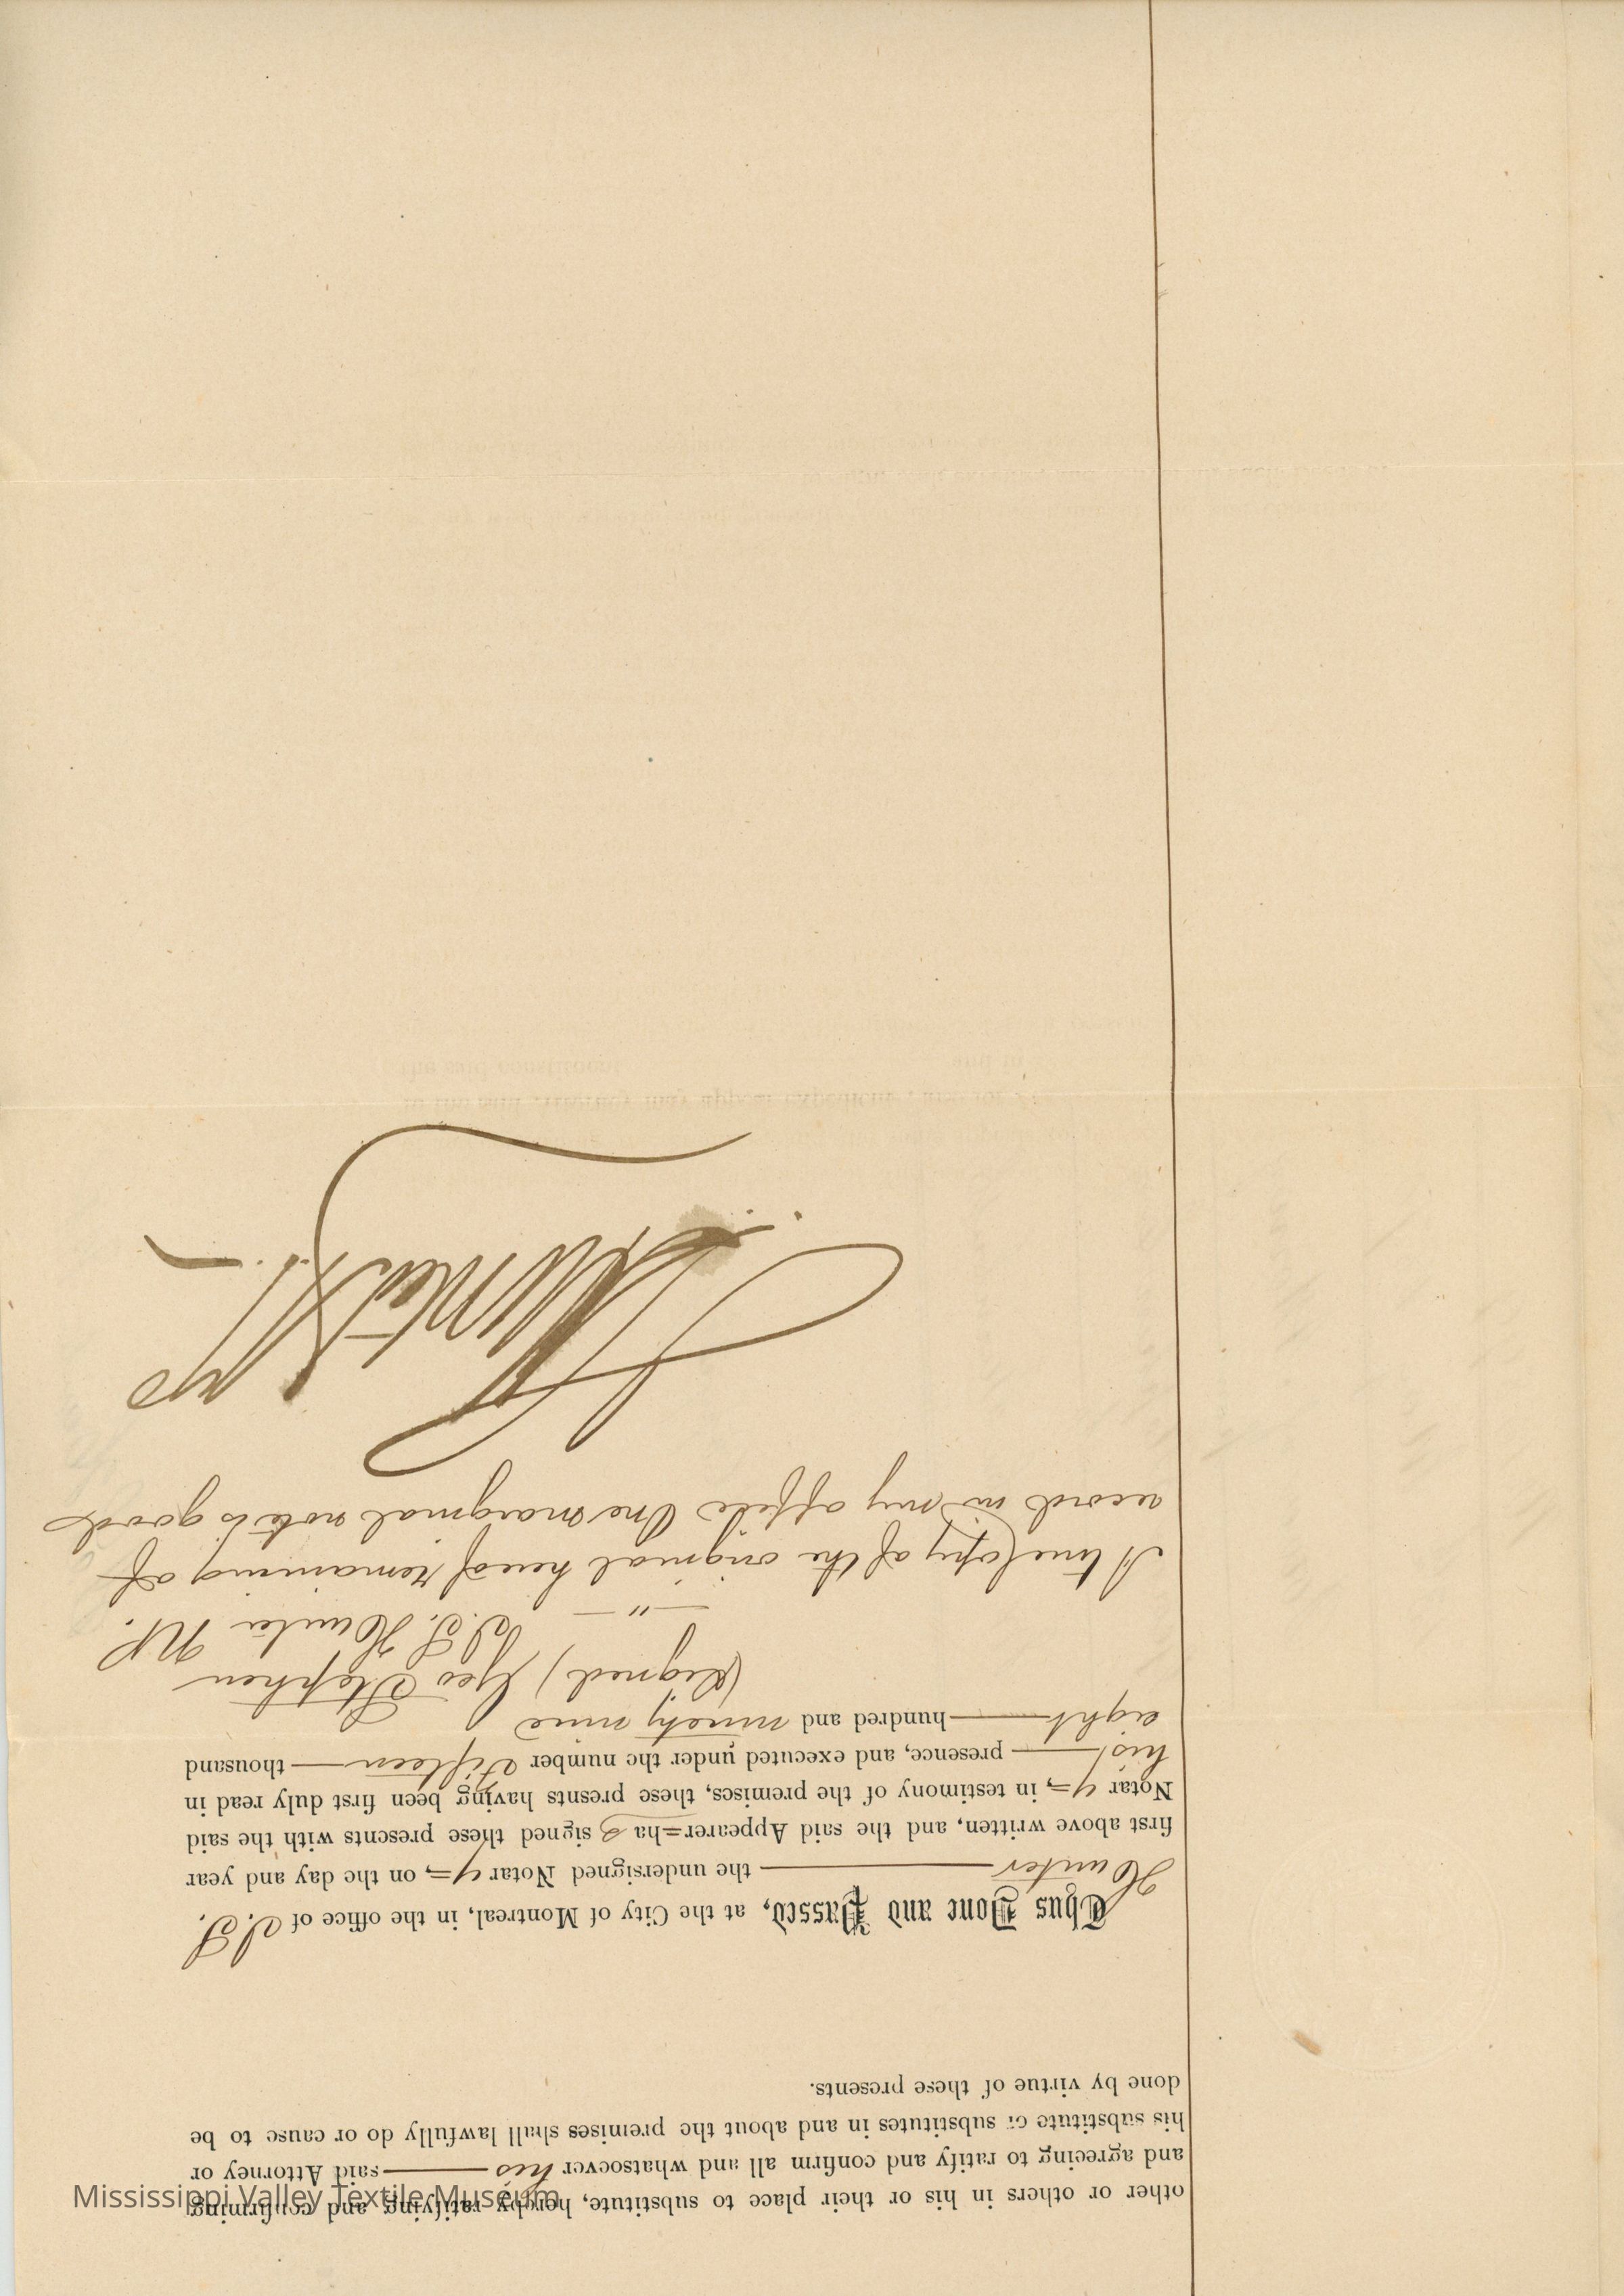 other or others in his or their place to substitute, hereby ratifying and confirming
and agreeing to ratify and confirm all and whatsoever his said Attorney or
his substitute or substitutes in and about the premises shall lawfully do or cause to be
done by virtue of these presents.
Thus Done and Passed, at the City of Montreal, in the office of J. S.
Hunter the undersigned Notar y=, on the day and year
first above written, and the said Appearer=ha s signed these presents with the said
Notar y=, in testimony of the premises, these presnts having been first duly read in
his presence, and executed under the number fifteen thousand
eight hundred and ninety nine
(Signed) Geo Stephen
" J. S. Hunter NP.
A true Copy of the original hereof remaining of
record in my office One marginal note is good
J. S. Hunter NP
Mississippi Valley Textile Museum